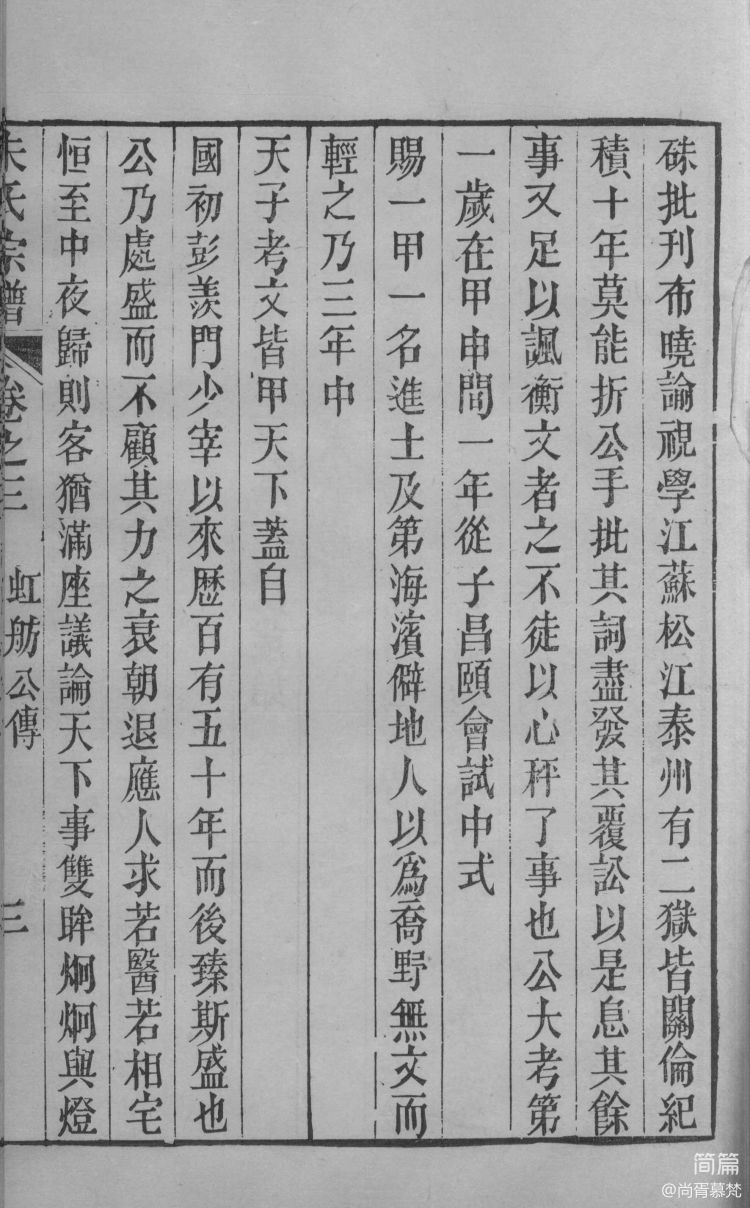 硃批刊布曉諭視學江蘇松江泰州有二獄皆關倫紀
積十年莫能折公手批其詞盡發其覆訟以是息其餘
事又足以諷衡文者之不徒以心秤了事也公大考第
一歲在甲申間一年從子昌頤會試中式
賜一甲一名進士及第海濱僻地人以爲喬野無文而
輕之乃三年中
天子考文皆甲天下蓋自
國初彭羨門少宰以來歷百有五十年而後臻斯盛也
公乃處盛而不顧其力之衰朝退應人求若醫若相宅
恒至中夜歸則客猶滿座議論天下事雙眸炯炯與燈
朱氏宗譜 卷之三 虹舫公傳 三
简篇
@尚胥慕梵